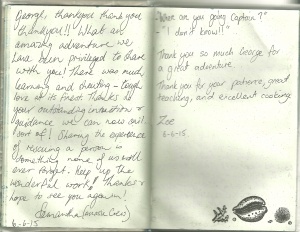 George, thankyou thank you
thankyou!! What an
amazing adventure we
have been privileged to share
with you! There was much
learning and sharing - tough
love at its finest. Thanks to
your outstanding instruction &
guidance we can now sail
! Sharing the experience
of rescuing a person is
something none of us will
ever forget. Keep up the
wonderful work! Thanks &
hope to see you again!
Samantha
6-6-15
"Where are you going Captain?"
"I don't know!!"
Thank you so much George for
a great adventure
Thank you for your patience, great
teaching, and excellent cooking
Zoe
6-6-15